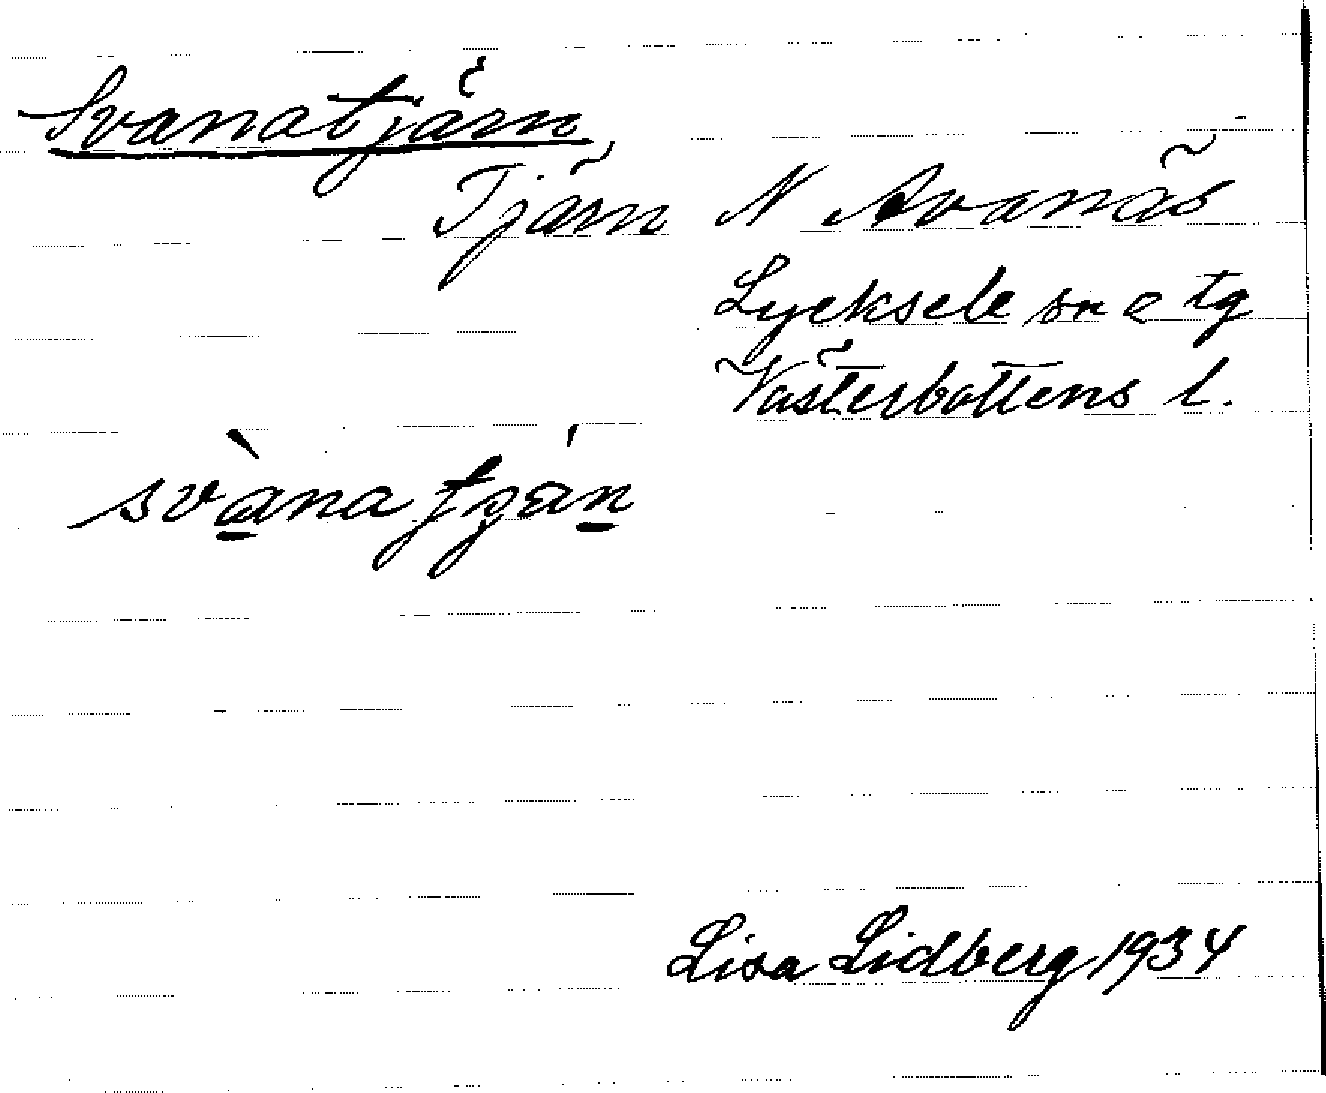 Svanatjärn
Tjärn N Avanäs
Lycksele sn o tg
Västerbottens l.
svànatjä́n
Lisa Lidberg 1934